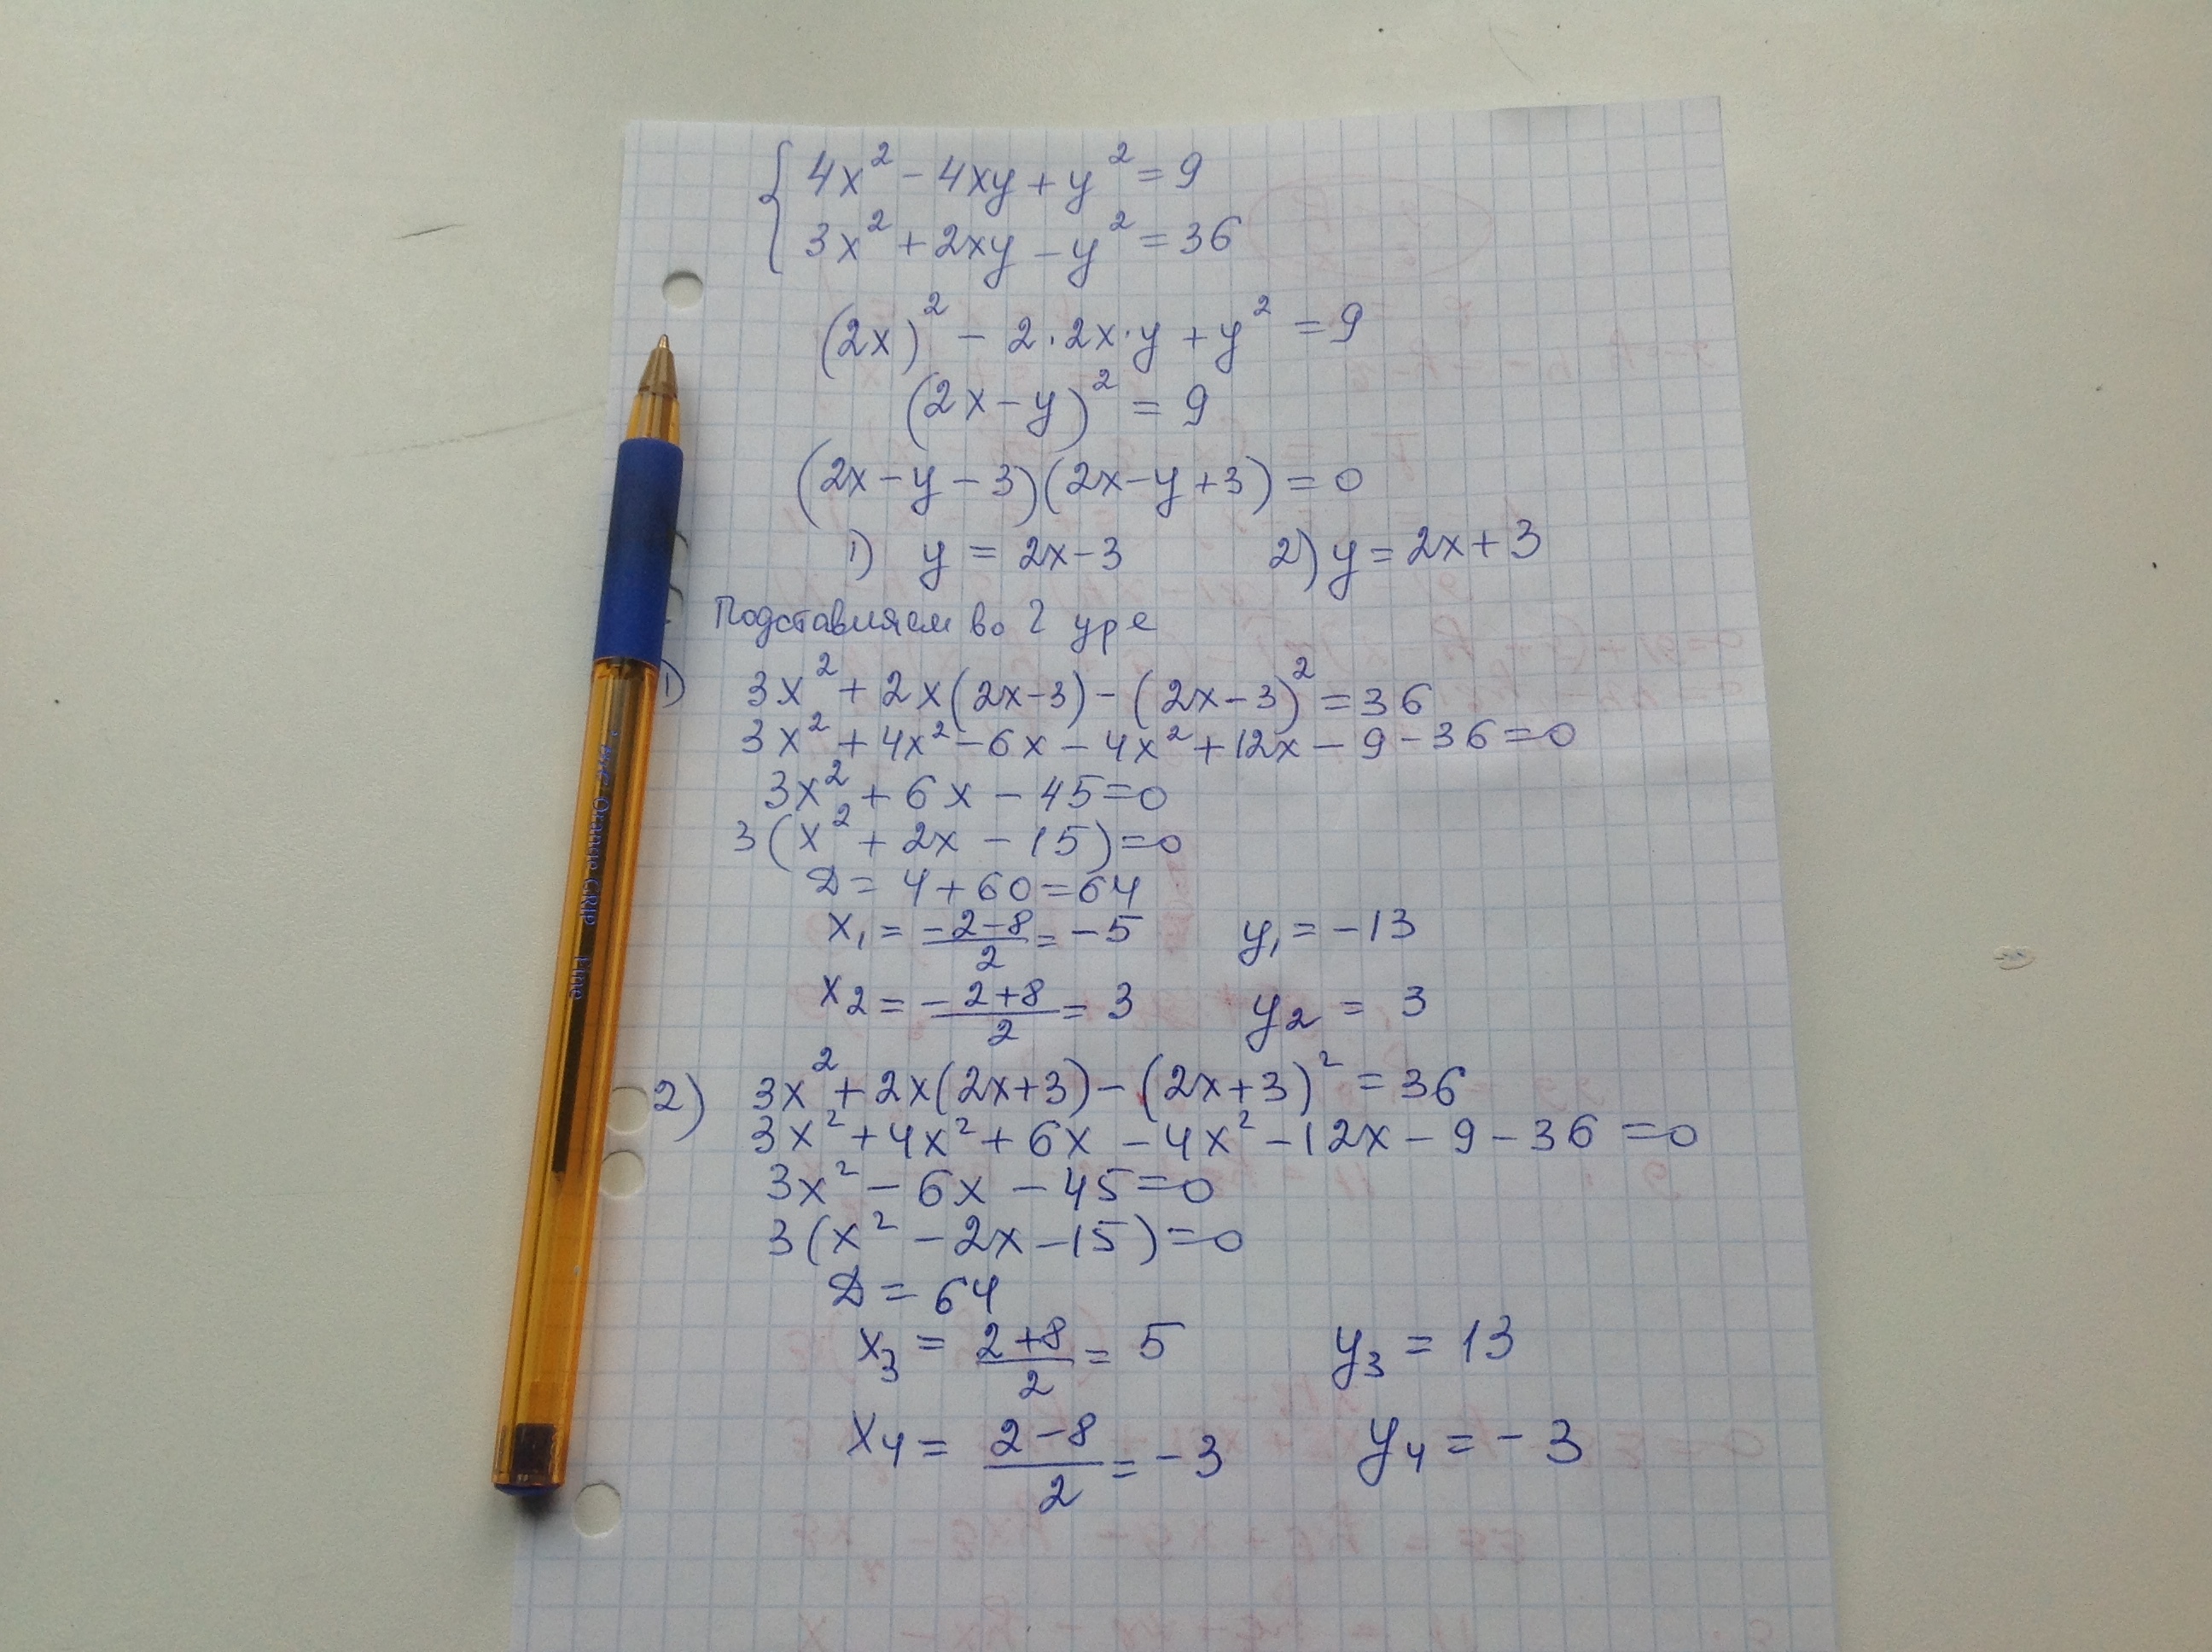 { 4x² - 4xy + y² = 9
3x² + 2xy - y² = 36
(2x)² - 2·2x·y + y² = 9
(2x - y)² = 9
(2x - y - 3)(2x - y + 3) = 0
1) y = 2x - 3 2) y = 2x + 3
Подставляем во 2 уре
1) 3x² + 2x(2x-3) - (2x-3)² = 36
3x² + 4x² - 6x - 4x² + 12x - 9 - 36 = 0
3x² + 6x - 45 = 0
3(x² + 2x - 15) = 0
D = 4 + 60 = 64
x₁ = (-2-8)/2 = -5 y₁ = -13
x₂ = (-2+8)/2 = 3 y₂ = 3
2) 3x² + 2x(2x+3) - (2x+3)² = 36
3x² + 4x² + 6x - 4x² - 12x - 9 - 36 = 0
3x² - 6x - 45 = 0
3(x² - 2x - 15) = 0
D = 64
x₃ = (2+8)/2 = 5 y₃ = 13
x₄ = (2-8)/2 = -3 y₄ = -3
Orange GRIP Fine